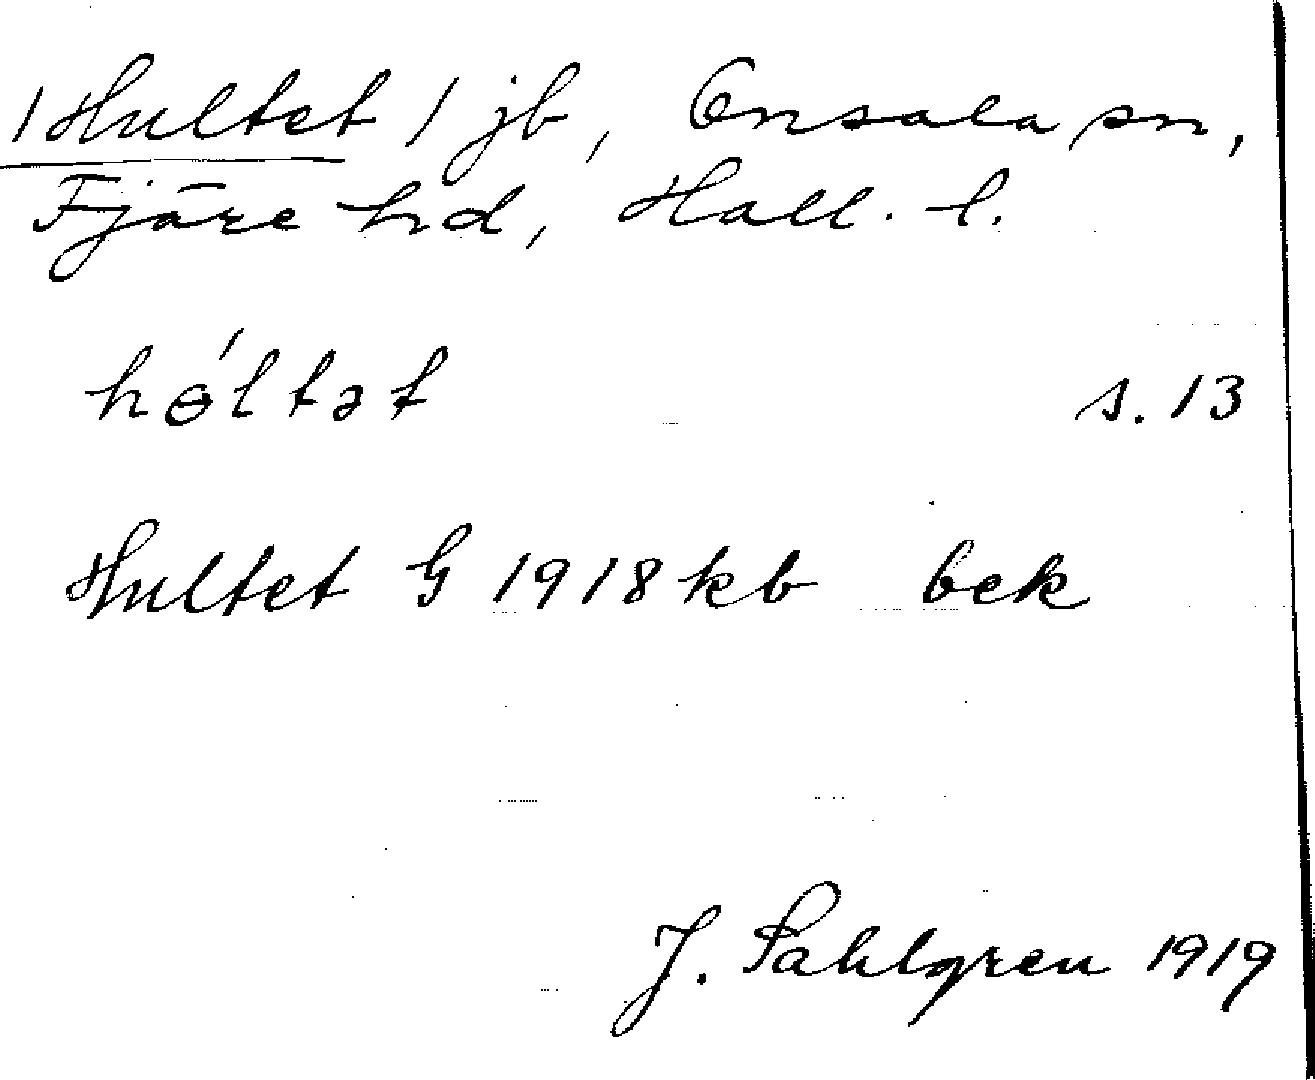 /Hultet/ jb, Onsala sn,
Fjäre hd, Hall. l.
hɵ́ltət s. 13
Hultet G 1918 kb bek
J. Sahlgren 1919